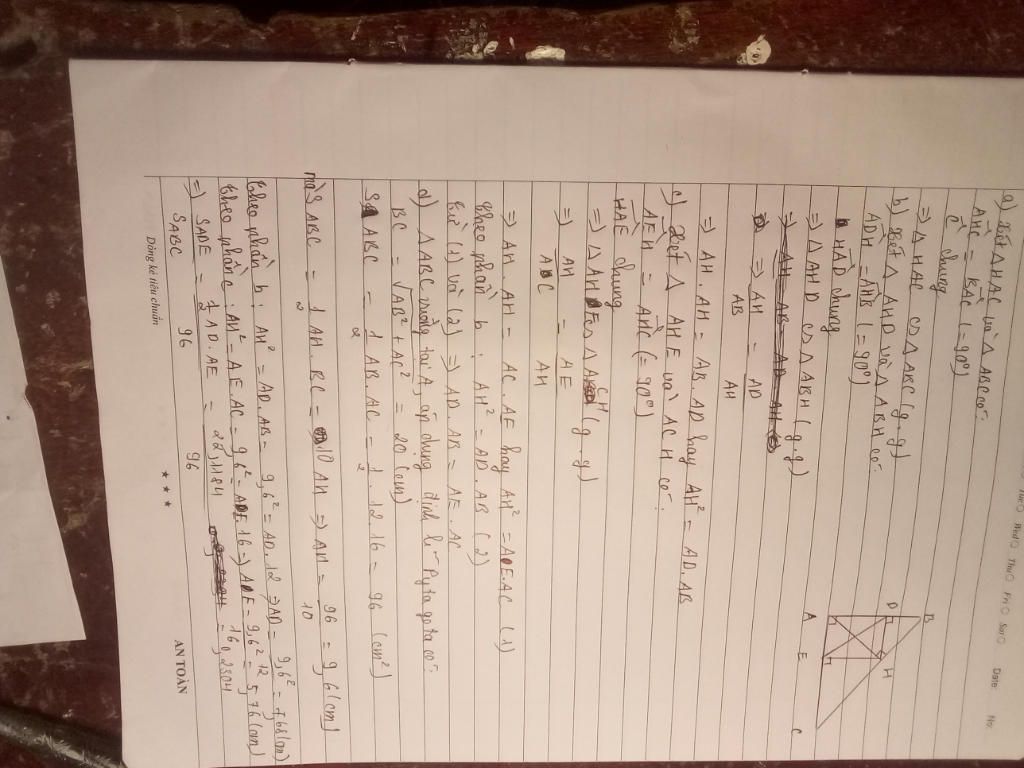 Thu Fri Sat Date: No:
a) Xét △HAC và △ABC có:
AHC = BAC (= 90°)
C chung
=> △HAC ᔕ △ABC (g.g)
b) Xét △ AHD và △ABH có:
ADH = AHB (= 90°)
HAD chung
=> △AHD ᔕ △ABH (g.g)
=> AH/AB = AD/AH
=> AH.AH = AB.AD hay AH² = AD.AB
c) Xét △ AHE và ACH có:
AEH = AHC (= 90°)
HAE chung
=> △AHE ᔕ △ACH (g.g)
=> AH/AC = AE/AH
=> AH.AH = AC.AE hay AH² = AE.AC (1)
theo phần b: AH² = AD.AB (2)
từ (1) và (2) => AD.AB = AE.AC
d) △ABC vuông tại A, áp dụng định lí Pytago ta có:
BC = √AB² + AC² = 20 (cm)
S ABC = 1/2 AB.AC = 1/2 . 12.16 = 96 (cm²)
mà S ABC = 1/2 AH.BC = 10AH => AH = 96/10 = 9,6 (cm)
theo phần b: AH² = AD.AB = 9,6² = AD.12 => AD = 9,6²/12 = 7,68 (cm)
theo phần c: AH² = AE.AC = 9,6² = AE.16 => AE = 9,6²/16 = 5,76 (cm)
=> SADE/SABC = 1/2 AD.AE/96 = 22,1184/96 = 0,2304
Dòng kẻ tiêu chuẩn ★ ★ ★ AN TOÀN
A B C D E H